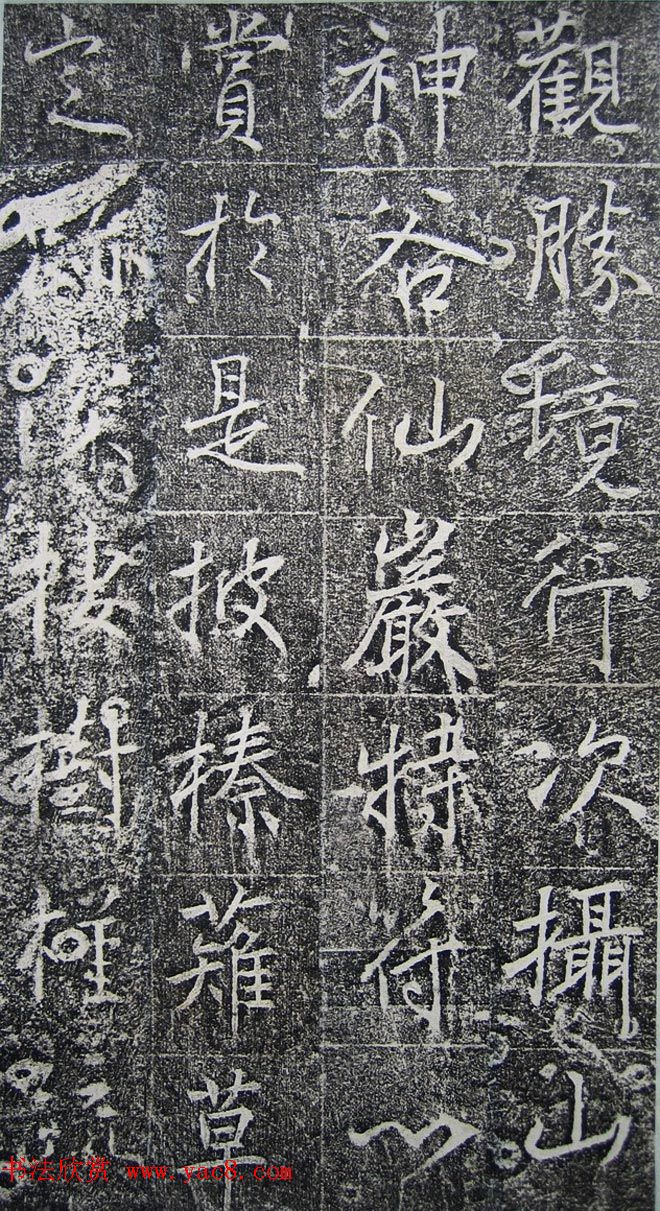 觀勝境行次攝山
神谷仙巖特符心
賞於是披榛薙草
定棲樹槿
书法欣赏 www.yac8.com